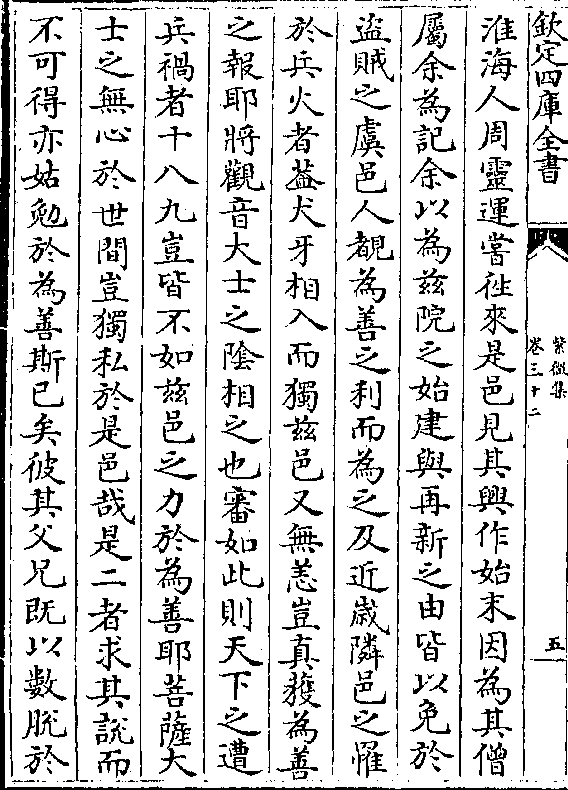 欽定四庫全書
紫微集
卷三十二
五
淮海人周靈運嘗徃來是邑見其興作始末因為其僧
屬余為記余以為兹院之始建與再新之由皆以免於
盗賊之虞邑人覩為善之利而為之及近嵗隣邑之罹
於兵火者葢犬牙相入而獨兹邑又無恙豈真獲為善
之報耶將觀音大士之隂相之也審如此則天下之遭
兵禍者十八九豈皆不如兹邑之力於為善耶菩薩大
士之無心於世間豈獨私於是邑哉是二者求其説而
不可得亦姑勉於為善斯已矣彼其父兄既以數脱於